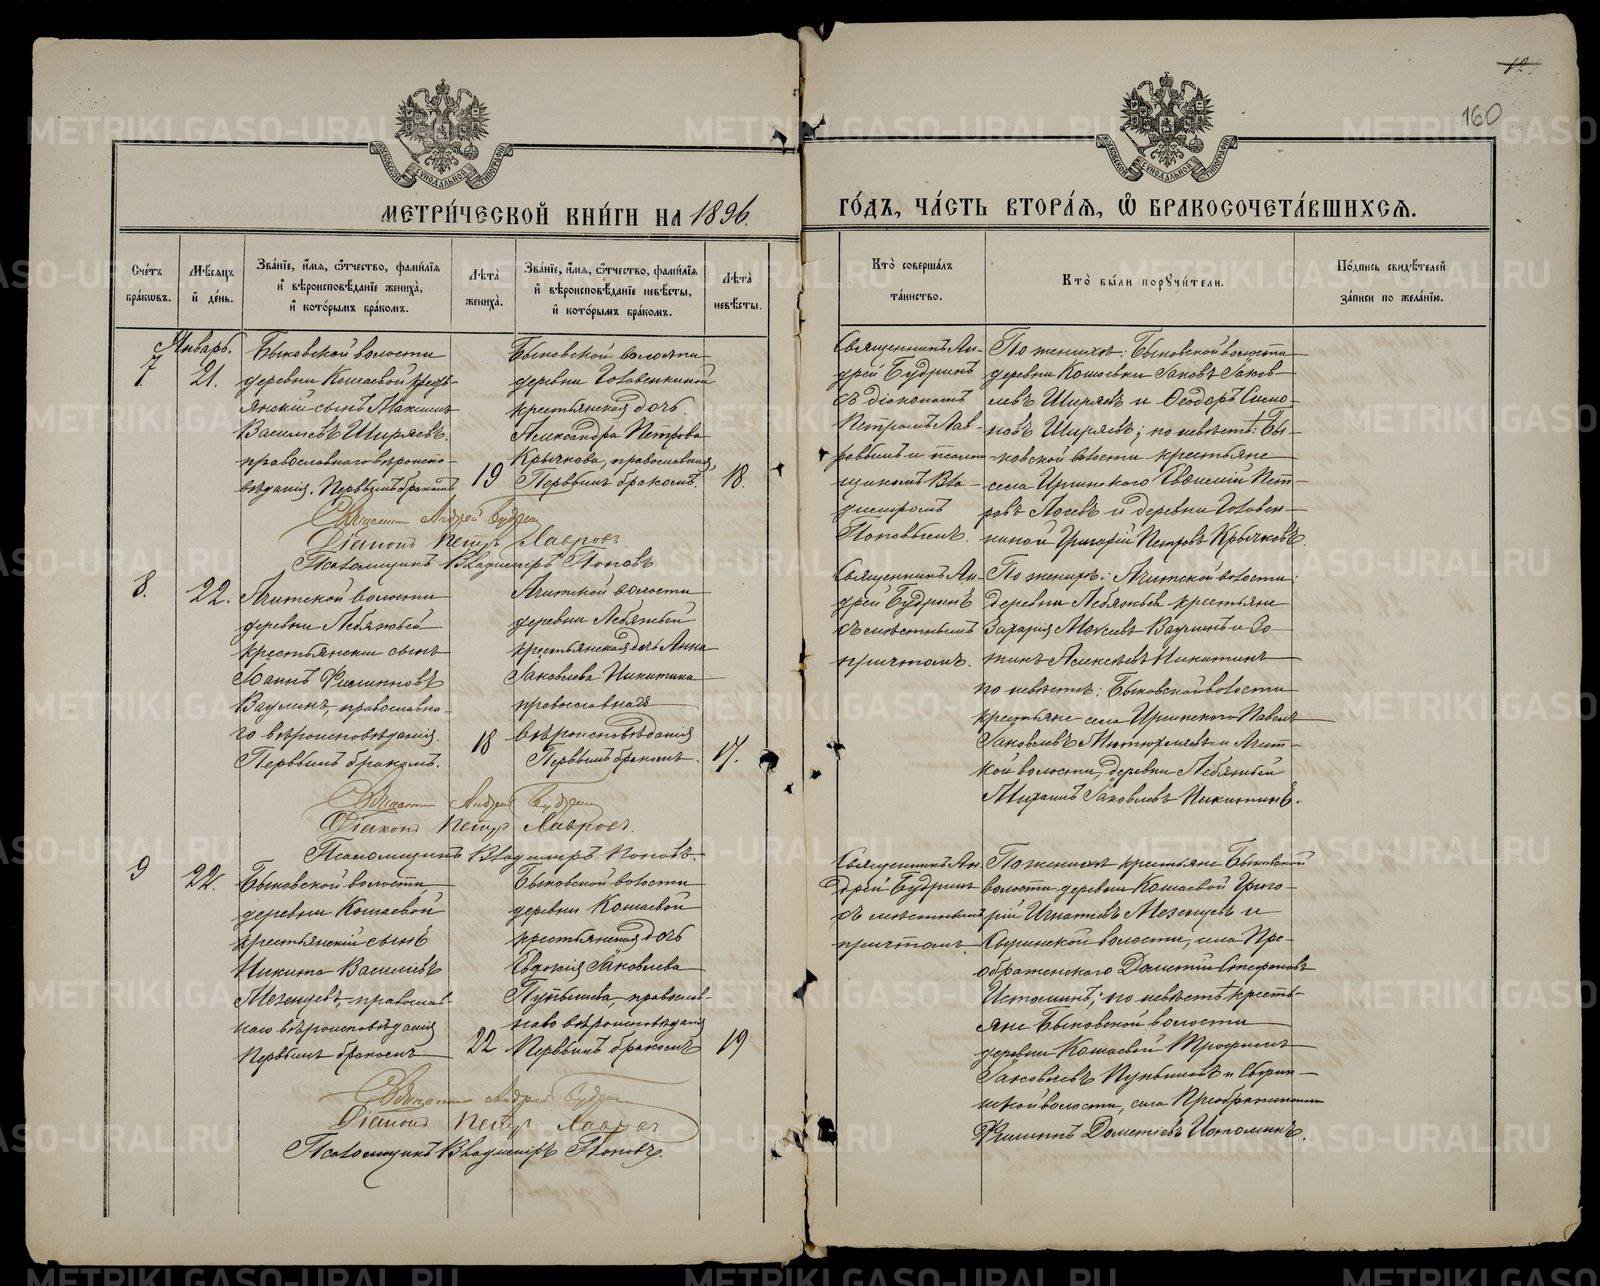 12.
160
МОСКОВСКОЙ СѴНОДАЛЬНОЙ ТИПОГРАФІИ
МОСКОВСКОЙ СѴНОДАЛЬНОЙ ТИПОГРАФІИ
МЕТРИ́ЧЕСКОЙ КНИ́ГИ НА 1896.
ГО́ДЪ, ЧА́СТЬ ВТОРА́Ѧ, Ѽ БРАКОСОЧЕТА́ВШИХСѦ.
Сче́тъ бра́кѡвъ.
Мѣ́сѧцъ и҆ де́нь.
Зва́нїе, и҆́мѧ, ѻ҆́тчество, фами́лїѧ и҆ вѣроисповѣ́данїе жениха̀, и҆ кото́рымъ бра́комъ.
Лѣ́та жениха̀.
Зва́нїе, и҆́мѧ, ѻ҆́тчество, фами́лїѧ и҆ вѣроисповѣ́данїе невѣ́сты, и҆ кото́рымъ бра́комъ.
Лѣ́та невѣ́сты.
Кто̀ соверша́лъ та́инство.
Кто̀ бы́ли порꙋчи́тели.
По́дпись свидѣ́телей за́писи по жела́нїю.
Январь.
7
21.
Быковской волости
деревни Кошаевой кресть-
янскій сынъ Максимъ
Василіевъ Ширяевъ.
православнаго вѣроиспо-
вѣданія. Первымъ бракомъ
19
Быковской волости
деревни Головенкиной
крестьянская дочь
Александра Петрова
Крычкова, православная,
Первымъ бракомъ.
18.
Священникъ Ан-
дрей Будринъ
съ діакономъ
Петромъ Лав-
ровымъ и псалом-
щикомъ Вла-
диміромъ
Поповымъ.
По женихѣ: Быковской волости
деревни Кошаевки Іаковъ Іаков-
левъ Ширяевъ и Ѳеодоръ Симо-
новъ Ширяевъ; по невѣстѣ: Бы-
ковской волости крестьяне
села Иргинскаго Евѳимій Пет-
ровъ Лосевъ и деревни Головен-
киной Григорій Петровъ Крычковъ.
Священникъ Андрей Будринъ
Діаконъ Петръ Лавровъ.
Псаломщикъ Владиміръ Поповъ
8.
22.
Ачитской волости
деревни Лебяжьей
крестьянскій сынъ
Іоаннъ Филипповъ
Ваулинъ, православна-
го вѣроисповѣданія.
Первымъ бракомъ.
18
Ачитской волости
деревни Лебяжьей
крестьянская дочь Анна
Іаковлева Никитина
православнаго
вѣроисповѣданія
Первымъ бракомъ.
17.
Священникъ Ан-
дрей Будринъ
съ мѣстнымъ
причтомъ.
По женихѣ: Ачитской волости:
деревни Лебяжьей крестьяне
Захарія Моисеевъ Ваулинъ и Зо-
тикъ Алексѣевъ Никитинъ
по невѣстѣ: Быковской волости
крестьяне села Иргинскаго Павелъ
Іаковлевъ и Ачит-
кой волости, деревни Лебяжьей
Михаилъ Іаковлевъ Никитинъ.
Священникъ Андрей Будринъ
Діаконъ Петръ Лавровъ.
Псаломщикъ Владиміръ Поповъ.
9
22.
Быковской волости,
деревни Кошаевой
крестьянскій сынъ
Никита Василіевъ
Мезенцевъ, православ-
наго вѣроисповѣданія
Первымъ бракомъ
22
Быковской волости
деревни Кошаевой
крестьянская дочь
Евдокія Іаковлева
Пупышева, православ-
наго вѣроисповѣданія
Первымъ бракомъ
19
Священникъ Ан-
дрей Будринъ
съ мѣстнымъ
причтомъ.
По женихѣ крестьяне Быковской
волости деревни Кошаевой Григо-
рій Игнатіевъ Мезенцевъ и
Сыринской волости, села Пре-
ображенскаго Дометій Стефановъ
Истоминъ; по невѣстѣ кресть-
яне Быковской волости
деревни Кошаевой Трофимъ
Іаковлевъ Пупышевъ и Сырин-
ской волости, села Преображенскаго
Филиппъ Дометіевъ Истоминъ.
Священникъ Андрей Будринъ
Діаконъ Петръ Лавровъ.
Псаломщикъ Владиміръ Поповъ.
METRIKI.GASO-URAL.RU